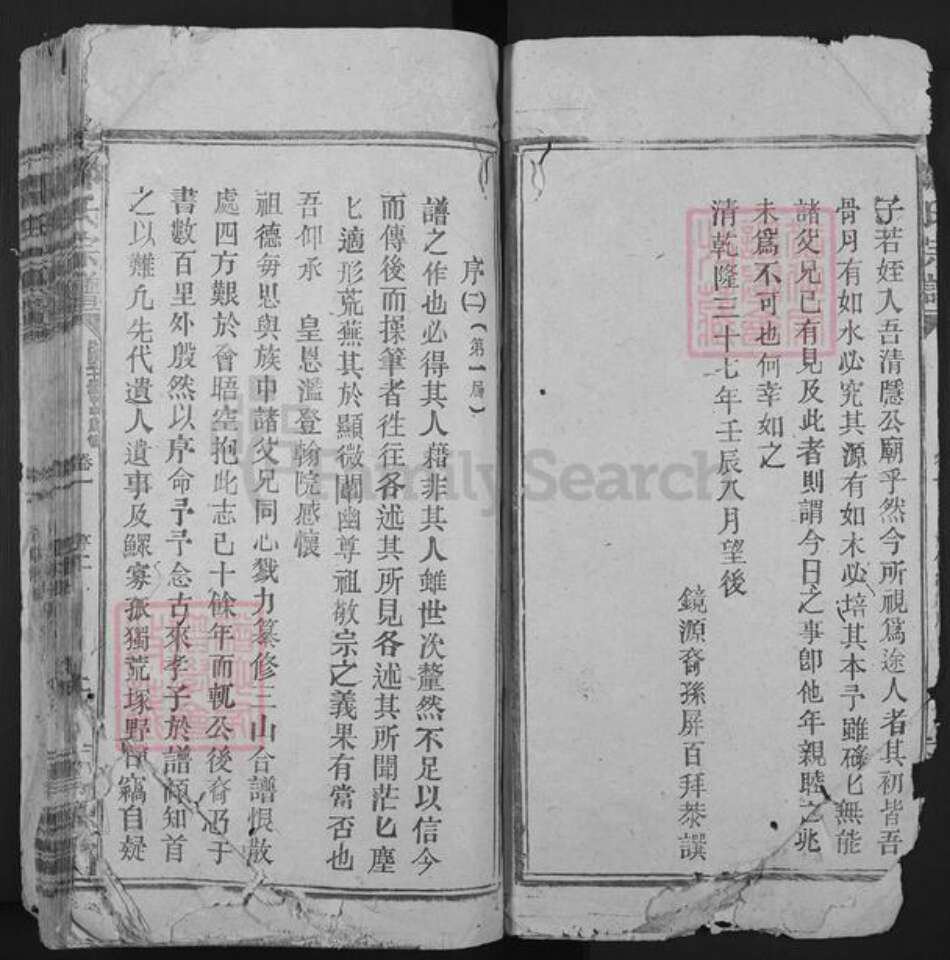 子若姪入吾清隱公廟乎然今所視爲途人者其初皆吾
骨月有如水必究其源有如木必培其本予雖碌匕無能
諸父兄已有見及此者則謂今日之事卽他年親睦之兆
未爲不可也何幸如之
清乾隆三十七年壬辰八月望後
鏡源裔孫屏百拜恭譔
序(二)(第一屆)
譜之作也必得其人藉非其人雖世次釐然不足以信今
而傳後而操筆者徃往各述其所見各述其所聞茫匕塵
匕適形荒蕪其於顯微闡幽尊祖敬宗之義果有當否也
吾仰承 皇恩濫登翰院感懷
祖德每思與族中諸父兄同心戮力纂修三山合譜恨散
處四方艱於會晤空抱此志已十餘年而軏公後裔乃于
書數百里外殷然以序命予予念古來孝子於譜傾知首
之以難凢先代遺人遺事及鰥寡孤獨荒塚野 竊自疑
氏宗譜
FamilySearch